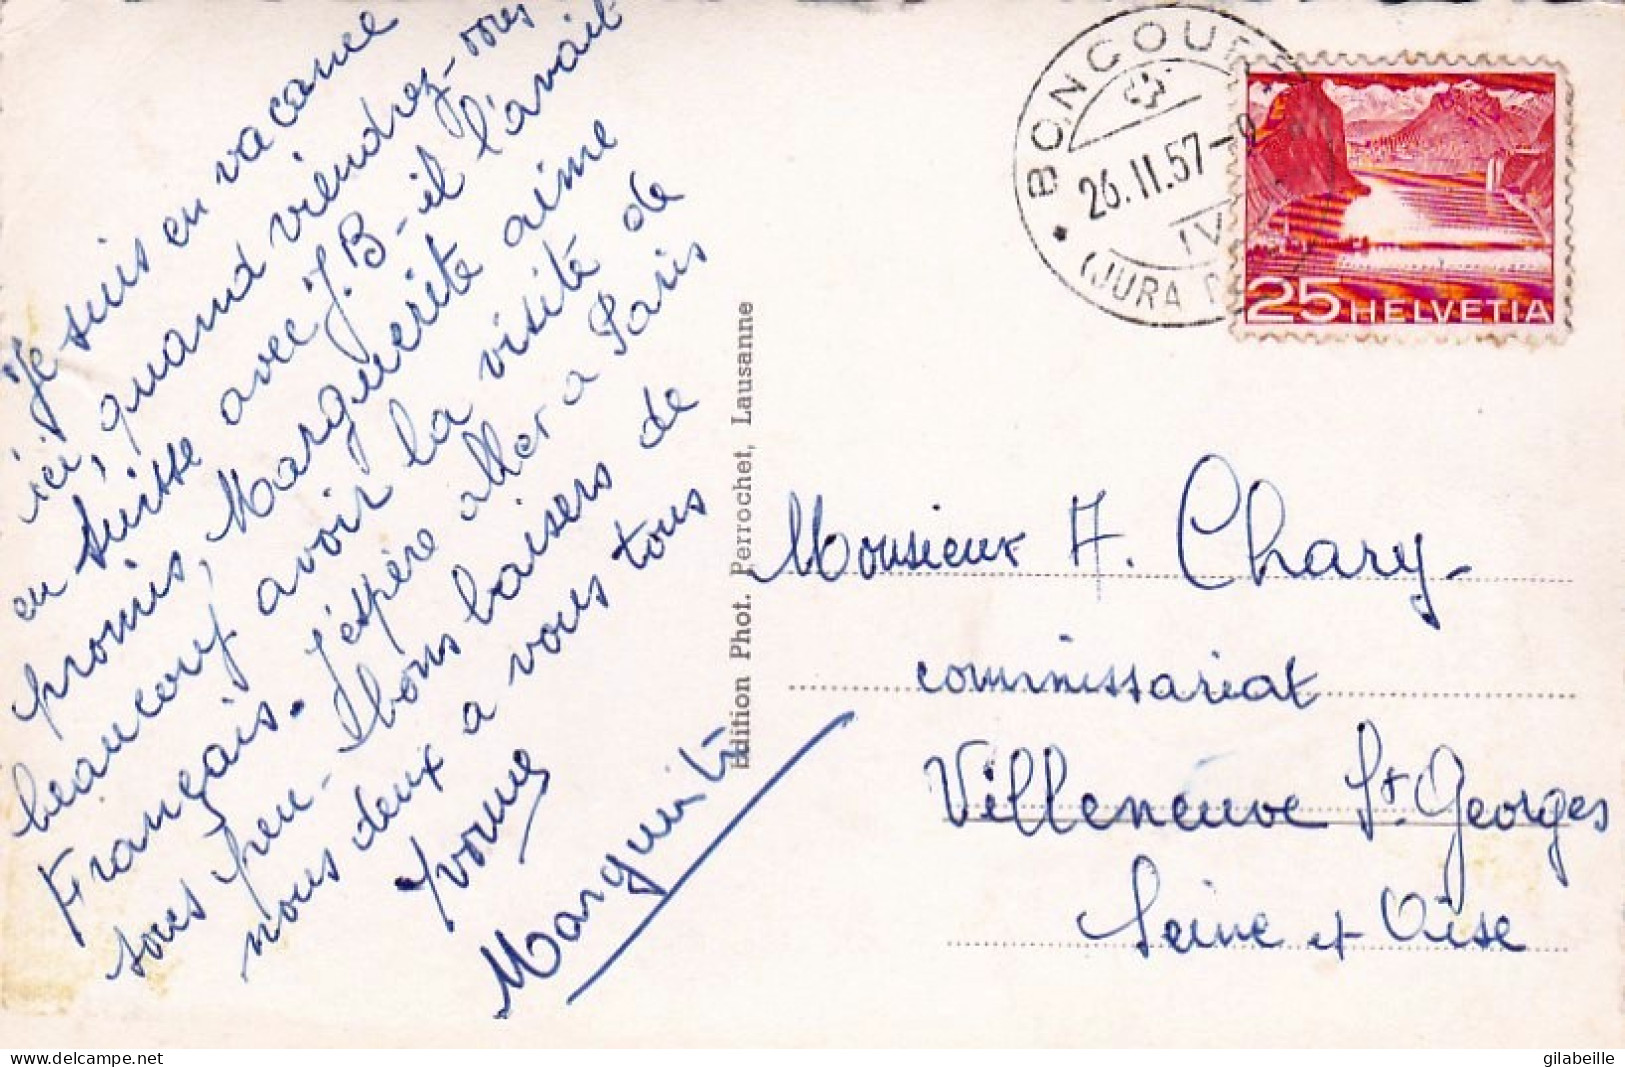 Je suis en vacance
ici, quand viendrez-vous
en Suisse avec J.B - il l'avait
promis, Marguerite aime
beaucoup avoir la visite de
Français. J'espère aller a Paris
sous peu - bons baisers de
nous deux a vous tous
Yvonne
Marguerite
Edition Phot. Perrochet, Lausanne
BONCOURT
26.II.57-9
IV
(JURA
25 HELVETIA
Monsieur A. Chary-
commissariat
Villeneuve St. Georges
Seine et Oise
www.delcampe.net
gilabeille